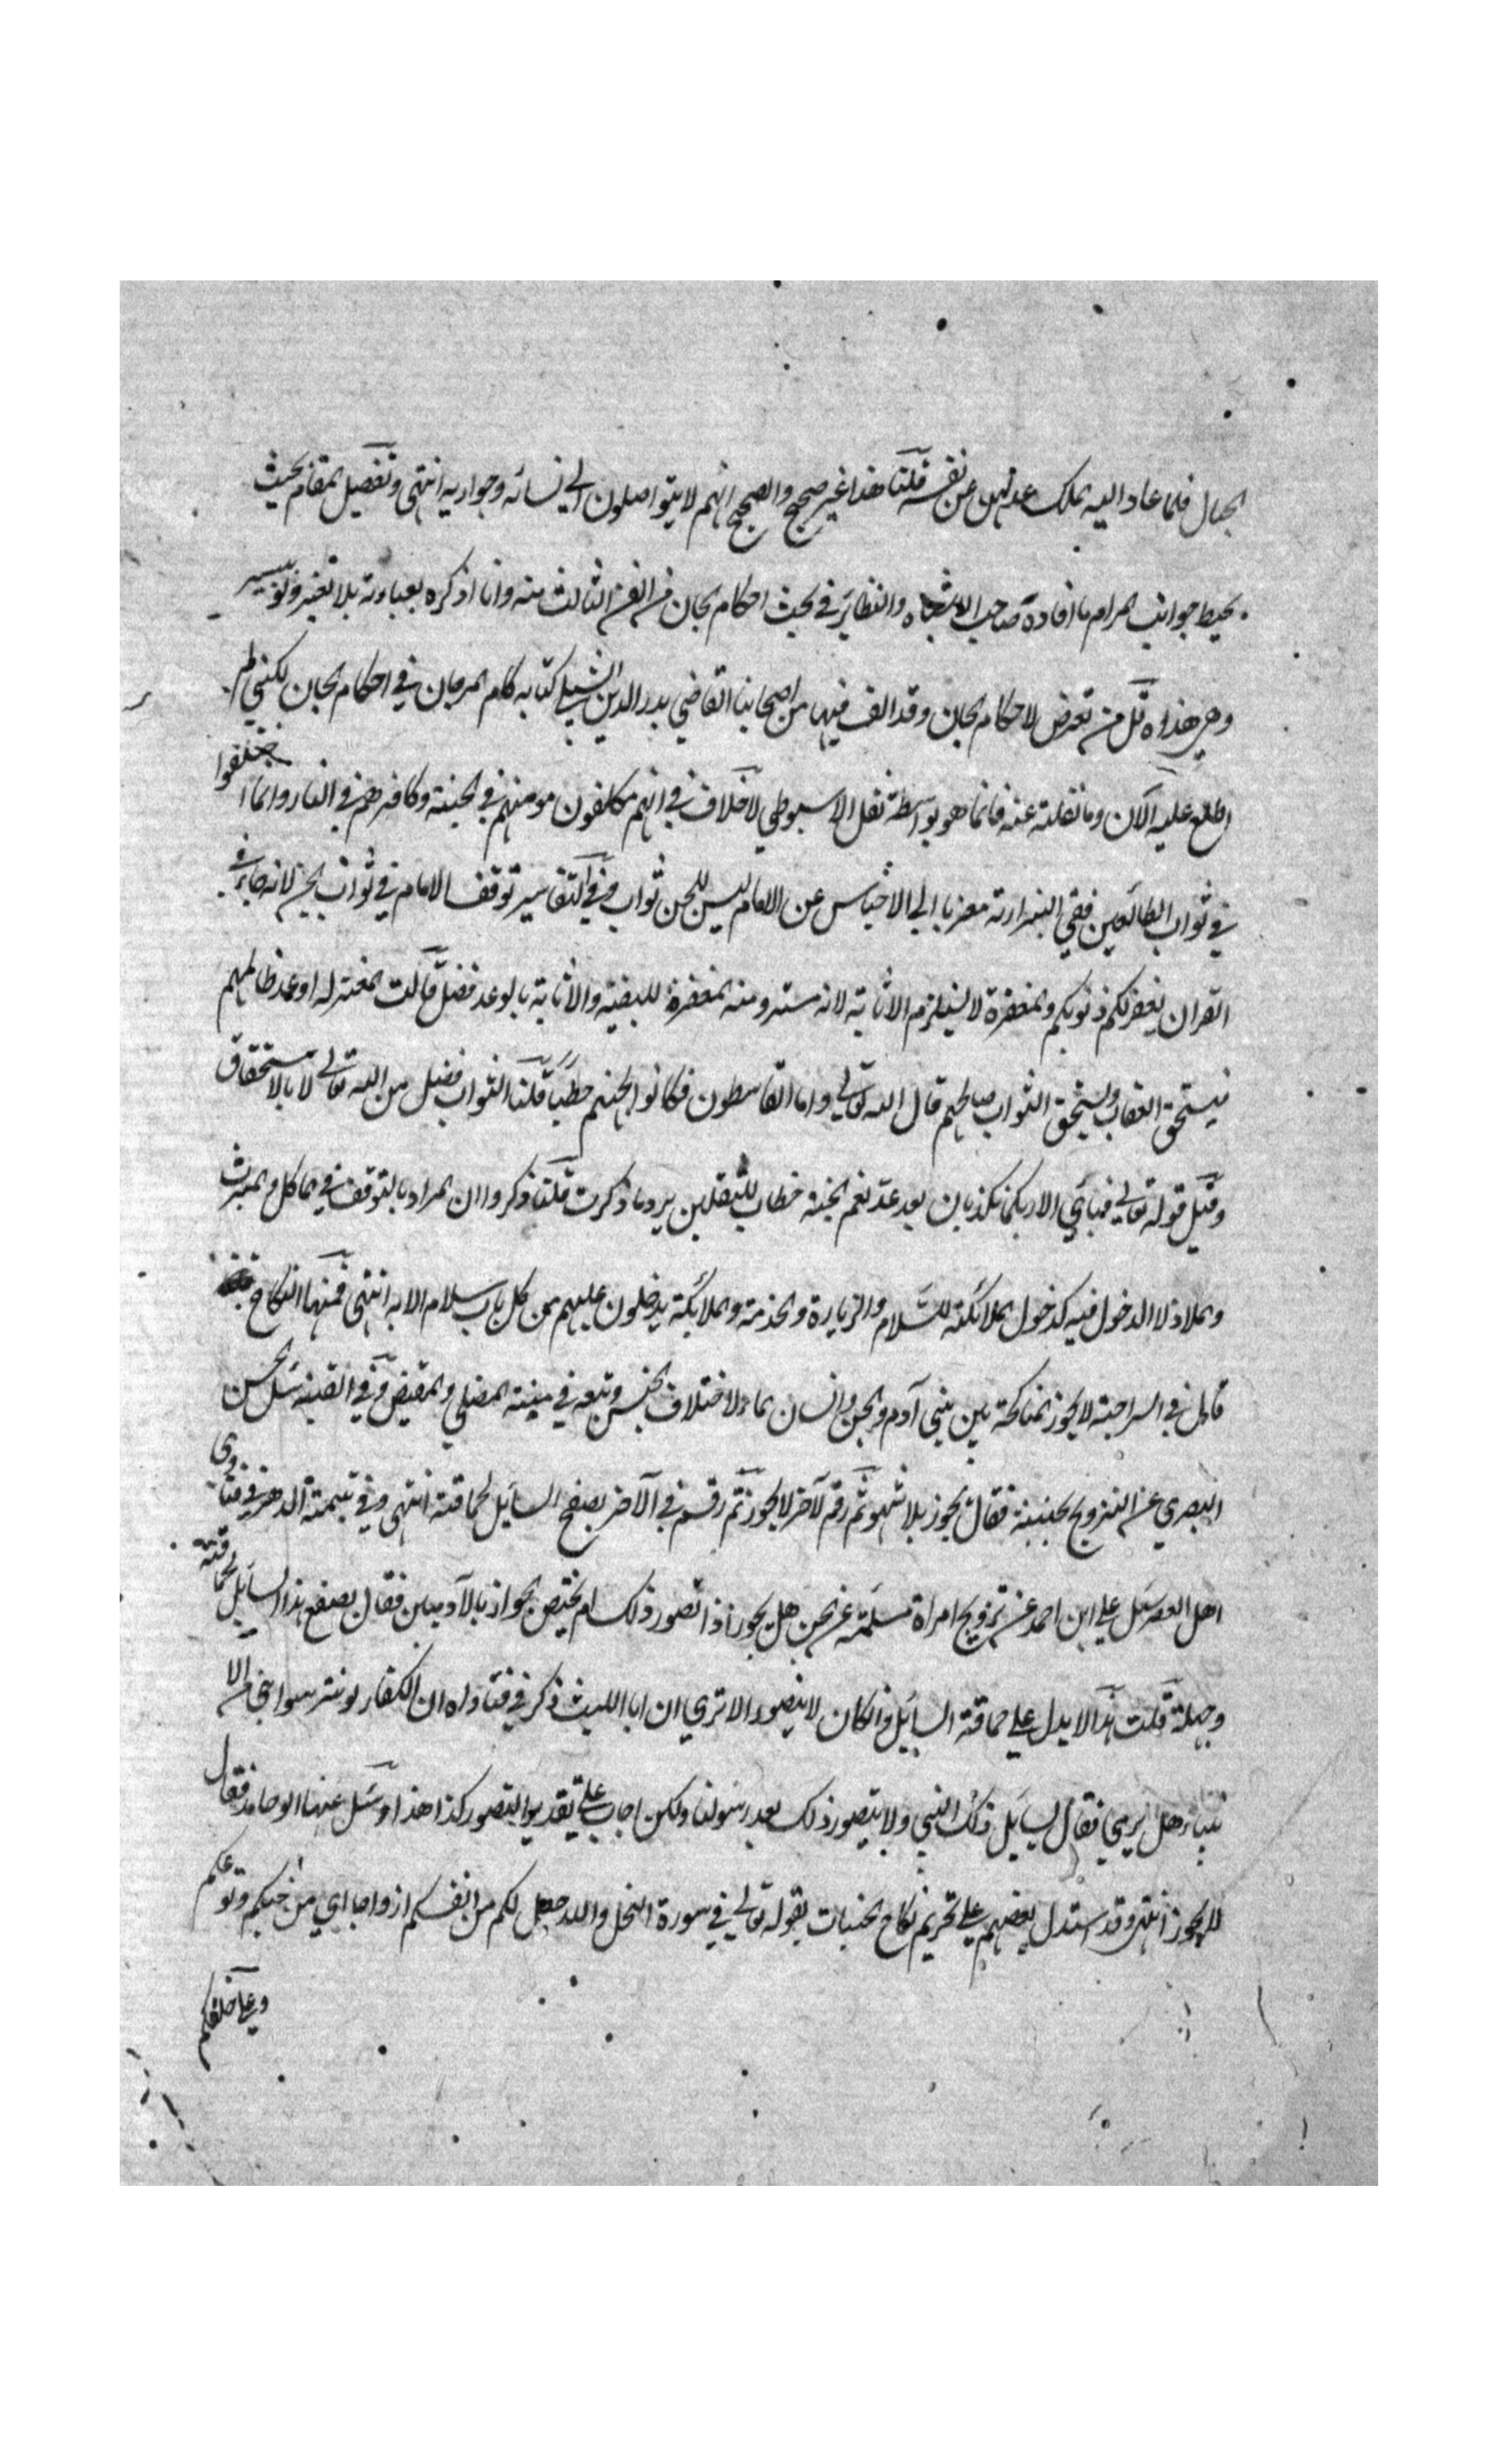 الجبال فلما عاد اليه الملك عدلهن عن نفسه قلنا هذا غير صحيح والصحيح انهم لا يتواصلون الي نسائه وجواريه انتهى وتفصيل المقام بحيث
يحيط جوانب المرام ما افاده صاحب الاشباه والنظاير في بحث احكام الجان من الفن الثالث منه وانا اذكره بعبارته بلا تغير وتوسير
وهي هذه قل من تعرض لاحكام الجان وقد الف فيها من اصحابنا القاضي بدر الدين الشبلي كتابه اكام المرجان في احكام الجان لكني لم
اطلع عليه الآن وما نقلته عنه فانما هو بواسطة نقل الاسيوطي لا خلاف في انهم مكلفون مومنهم في الجنة وكافرهم في النار وانما اختلفوا
في ثواب الطائعين ففي البزازية معزيا الي الاجناس عن الامام ليس للجن ثواب وفي التفاسير توقف الامام في ثواب الجن لانه جاء في
القران يغفر لكم ذنوبكم والمغفرة لا يستلزم الاثابة لانه ستر ومنه المغفر للبيضة والاثابة بالوعد فضل قالت المعتزله اوعد ظالمهم
فيستحق العقاب ويستحق الثواب صالحهم قال الله تعالي واما القاسطون فكانوا لجهنم حطبا قلنا الثواب فضل من الله تعالي لا بالاستحقاق
وقيل قوله تعالي فباي الا ربكما تكذبان بعد عد نعم الجنة خطاب للثقلين يرد ما ذكرت قلنا ذكروا ان المراد بالتوقف في الماكل والمشرب
والملاذ لا الدخول فيه كدخول الملائكة للسلام والزيارة والخدمة والملائكة يدخلون عليهم من كل باب سلام الاية انتهى فمنها النكاح
قال في السراجية لا يجوز المناكحة بين بني آدم والجن وانسان الماء لاختلاف الجنس وتبعه في منية المفتي والفيض وفي القنية سئل الحسن
البصري عن التزويج بجنية فقال يجوز بلا شهود ثم رقم لآخر لا يجوز ثم رقم في الآخر يصفع السايل لحماقته انتهى وفي يتيمة الدهر في فتاوى
اهل العصر سئل علي ابن احمد عن تزويج امراة مسلمة من الجن هل يجوز اذا تصور ذلك ام يختص الجواز بالآدميين فقال يصفع هذا السايل لحماقته
وجهله قلت هذا لا يدل علي حماقة السايل وان كان لا يتصور الا تري ان ابا الليث ذكر في فتاواه ان الكفار لو تترسوا بنبي من الا
نبياء هل يرمي فقال يسايل ذلك النبي ولا يتصور ذلك بعد رسولنا ولكن اجاب علي تقدير التصور كذا هذا وسئل عنها ابو حامد فقال
لا يجوز انتهى وقد استدل بعضهم علي تحريم نكاح الجنيات بقوله تعالي في سورة النحل والله جعل لكم من انفسكم ازواجا اي من جنسكم ونوعكم
وعلي خلقكم